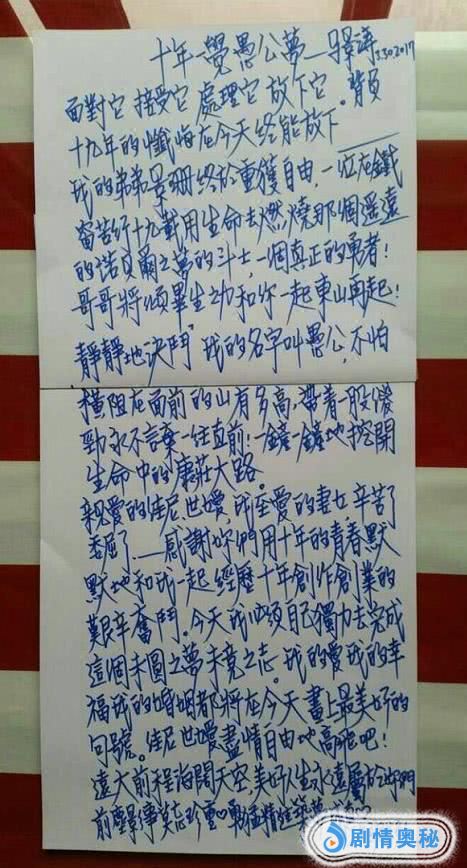 十年一覺愚公夢—驛濤 3.30 2017
面對它 接受它 處理它 放下它。背負
十九年的懺悔在今天終能放下
我的弟弟景珊終於重獲自由,一位在鐵
窗苦行十九載用生命去燃燒那個遥遠
的諾貝爾之夢的斗士,一個真正的勇者!
哥哥將傾畢生之功和你一起東山再起!
靜靜地決鬥"我的名字叫愚公,不怕
橫阻在面前的山有多高,帶着一股傻
勁永不言棄一往直前!一鎬一鎬地挖開
生命中的康莊大路。
親愛的佳尼、世嬡,我至愛的妻女,辛苦了
委屈了……感謝妳們用十年的青春默
默地和我一起經歷十年創作創業的
艱辛奮鬥。今天我必須自己獨力去完成
這個未圓之夢未竟之志。我的愛我的幸
福我的婚姻都將在今天畫上最美好的
句號。佳尼世嬡盡情自由地高飛吧!
遠大前程海闊天空,美好人生永遠屬於妳們
前塵影事莫忘珍重♡勇猛精進
剧情奥秘